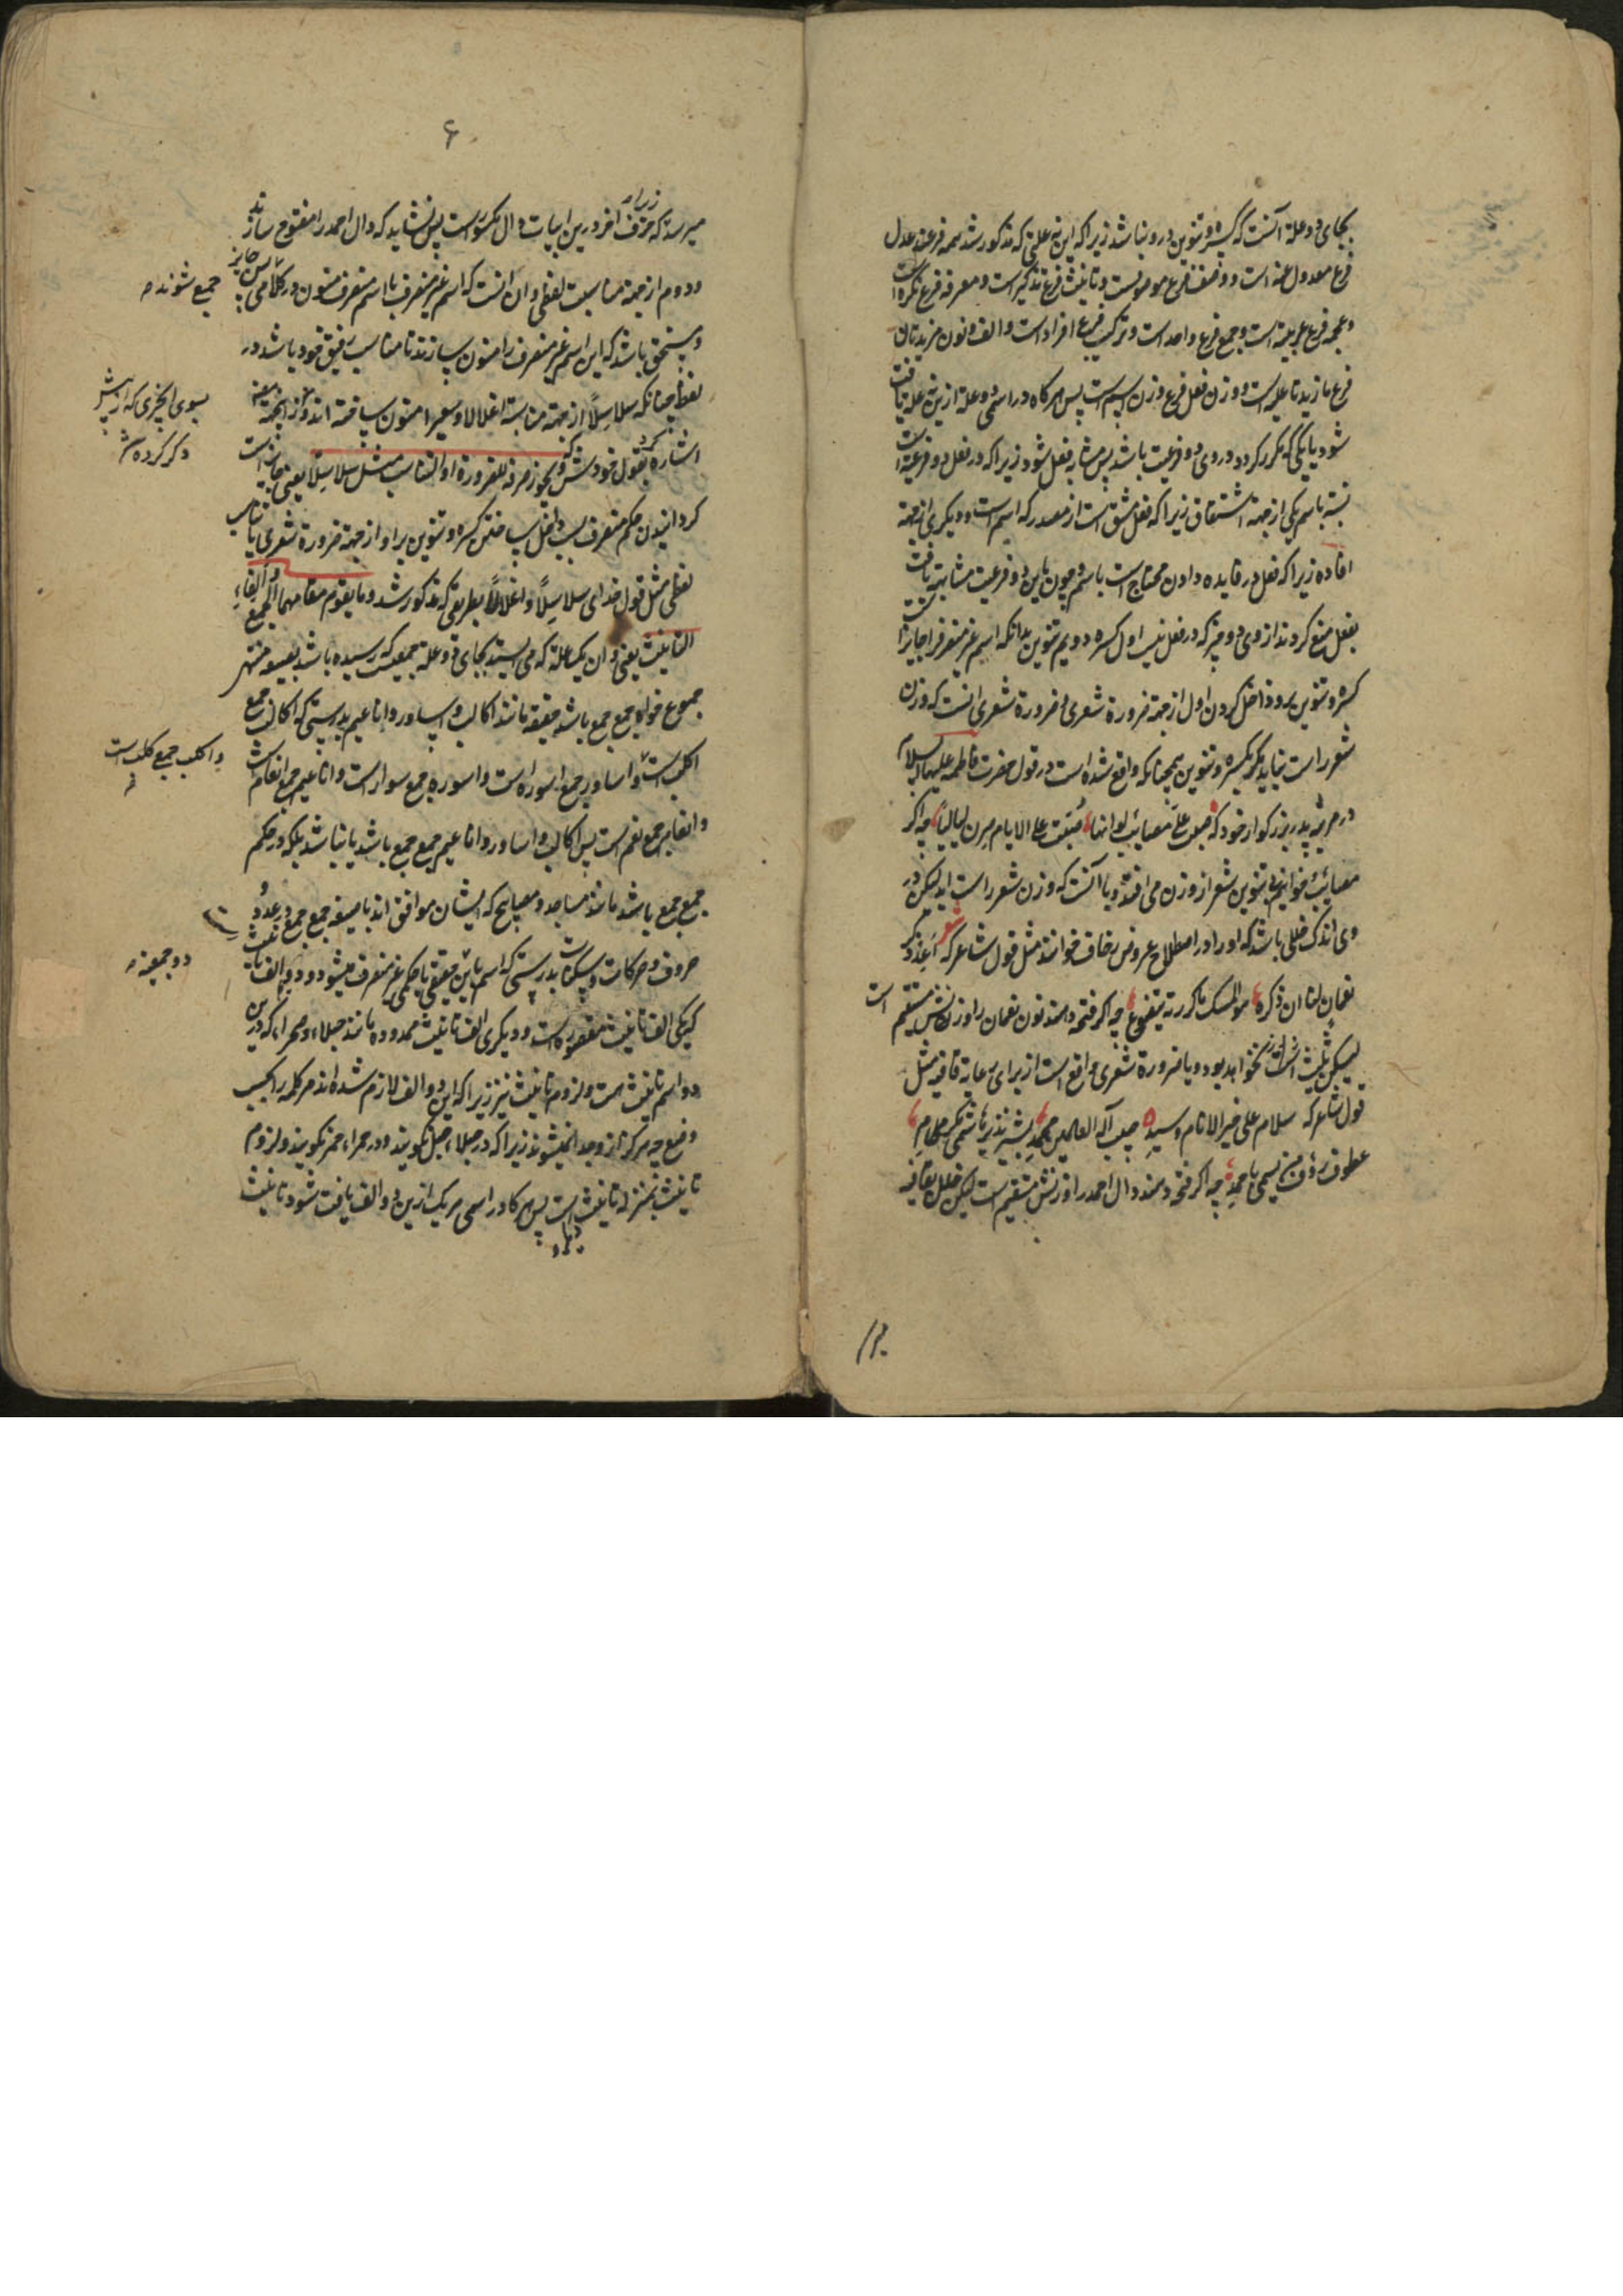 بجای دو علة آنست که کسره و تنوین درو نباشد زیرا که این نه علتی که مذکور شد همه فرعند عدل
فرع معدول عنه است و وصف فرع موصوفست و تانیث فرع تذکیر است و معرفه فرع نکره است
و عجمه فرع عربیة است و جمع فرع واحد است و ترکیب فرع افراد است و الف و نون مزیدتان
فرع ما زیدتا علیه است و وزن فعل فرع وزن اسم است پس هر کاه در اسمی دو علة ازین نه علة یافت
شود یا یکی که مکرر کردد در وی دو فرعیت باشد پس مشابه فعل شود زیرا که در فعل دو فرعیة است
نسبة باسم یکی از جهة اشتقاق زیرا که فعل مشتق است از مصدر که اسم است و دیکری از جهة
افاده زیرا که فعل در فایده دادن محتاج است باسم و چون باین دو فرعیت مشابهة یافت
بفعل منع کردند از وی دو چیز که در فعل نیست اول کسره دویم تنوین بدانکه اسم غیر منصرف را جایز است
کسره و تنوین برو داخل کردن اول از جهة ضرورة شعری و ضرورة شعری انست که وزن
شعر راست نیاید مکر بکسره و تنوین همچنانکه واقع شده است در قول حضرت فاطمه علیها السلام
در مرثیه پدر بزرکوار خود که صبت علی مصائب لو انها صبت علی الایام صرن لیالیا چه اکر
مصائب خوانیم بی تنوین شعر از وزن می افتد و یا آنست که وزن شعر راست اید لیکن در
وی اندک خللی باشد که او را در اصطلاح عروض زحاف خوانند مثل قول شاعر که شعر اعد ذکر
نعمان لنا ان ذکره هو المسک ما کررته یتضوع چه اکر فتحه دهند نون نعمان را وزنش مستقیم است
لیکن خواهد بود و یا ضرورة شعری واقع است از برای رعایة قافیه مثل
قول شاعر که سلام علی خیر الانام و سید حبیب اله العالمین محمد بشیر نذیر هاشمی مکرم
عطوف رؤف من یسمی باحمد چه اکر فتحه دهند دال احمد را وزنش مستقیم است لیکن خلل بقافیه
۶
میرسد زیرا که حرف اخر درین ابیات دال مکسور است پس نشاید که دال احمد را مفتوح سازند
و دوم از جهة مناسبت لفظی و ان انست که اسم غیر منصرف با اسم منصرف منون در کلامی
جمع شوند
و مستحق باشد که این اسم غیر منصرف را منون سازند تا مناسب رفیق خود باشد در
لفظ چنانکه سلاسلا از جهة مناسبة اغلالا و سعیرا منون ساخته اند
بسوی ان چیزی که از پیش
ذکر کرده ش
اشاره کرد بقول خودش که و یجوز صرفه للضرورة او التناسب مثل سلاسلا یعنی جایز است
کردانیدن حکم منصرف بسبب داخل ساختن کسره و تنوین بر او از جهة ضرورة شعری یا تناسب
لفظی مثل قول خدای سلاسلا و اغلالا بطریقی که مذکور شد و ما یقوم مقامهما الجمع و الفاء
التانیث یعنی و ان یک علة که می ایستد بجای دو علة جمعیست که رسیده باشد بصیغه منتهی
جموع خواه جمع جمع باشد حقیقة مانند اکالب و اساور و اناعیم بدرستی که اکالب جمع
اکلب است و اساور جمع اسوره است و اسوره جمع سوار است و اناعیم جمع انعام است
و اکلب جمع کلب است
و انعام جمع نعم است پس اکالب و اساور و اناعیم جمع جمع باشد یا نباشد بلکه در حکم
جمع جمع باشد مانند مساجد و مصابیح که ایشان موافق اند با صیغه جمع جمع در عدد
حروف و حرکات و سکنات بدرستی که اسم باین حقیقی یا حکمی غیر منصرف میشود و دو الف تانیث
دو جمعیة
که یکی الف تانیث مقصوره است و دیکری الف تانیث ممدوده مانند حبلی و حمراء که درین
دو اسم تانیث هست و لزوم تانیث نیز زیرا که این دو الف لازم شده اند هر کلمه را بحسب
وضع چه هرکز از وی جدا نمیشوند زیرا که در حبلی حبل نکویند و در حمراء حمر نکویند و لزوم
تانیث بمنزله تانیث است پس هر کاه در اسمی هر یک ازین دو الف یافت شود تانیث